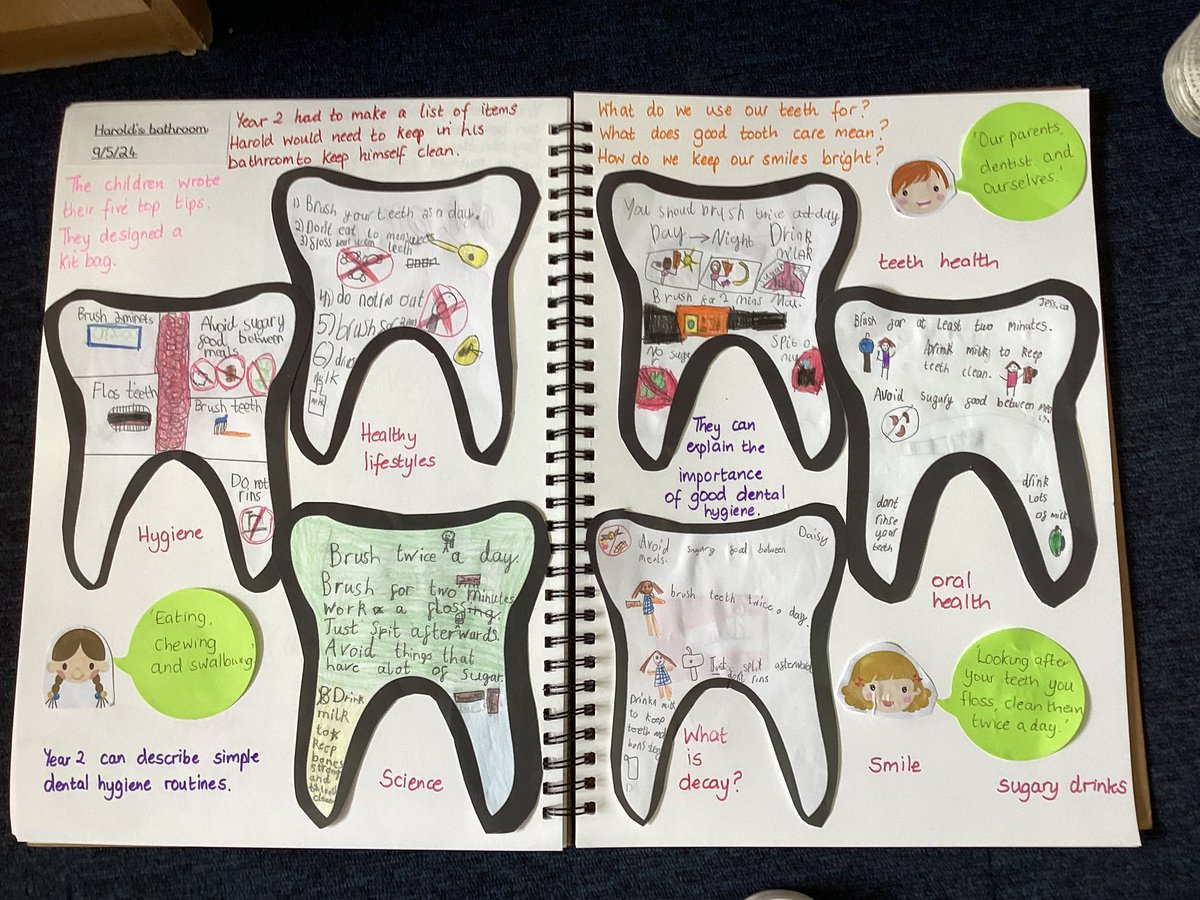 Harold's bathroom
9/5/24
Year 2 had to make a list of items
Harold would need to keep in his
bathroom to keep himself clean.
The children wrote
their five top tips.
They designed a
Kit bag.
1) Brush your teeth as a day.
2) Dont eat to
3) floss teeth
4) do not ins out
5) brush for 2
6)
milk
Healthy
lifestyles
Brush 2 minets
Avoid sugary
good between
meals
Flos teeth
Brush teeth
Do not
rins
Hygiene
Brush twice a day.
Brush for two minutes
work a flossing.
Just spit afterwards.
Avoid things that
have alot of sugar.
Drink
milk
to
keep
bones
strong
and
Science
'Eating,
Chewing
and swallowing'
Year 2 can describe simple
dental hygiene routines.
What do we use our teeth for?
What does good tooth care mean?
How do we keep our smiles bright?
'Our parents,
dentist and
ourselves.'
teeth health
You shoud brush twice a day
Day → Night
Drink
milk
Brush for 2 mins
No suger
Spit
They can
explain the
importance
of good dental
hygiene.
Jessica
Blush for at least two minutes.
Drink milk to keep
teeth clean.
Avoid sugary good between
dont
rinse
your
teeth
drink
Lots
of milk
oral
health
Daisy
Avoid sugary good between
meals.
brush teeth twice a day.
Just split
dont rins
Drink milk
to keep
teeth and
What
is
decay?
Smile
'Looking after
your teeth you
floss, clean them
twice a day.'
sugary drinks